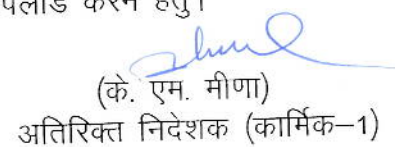 करने हेतु।
(के. एम. मीणा)
अतिरिक्त निदेशक (कार्मिक–1)